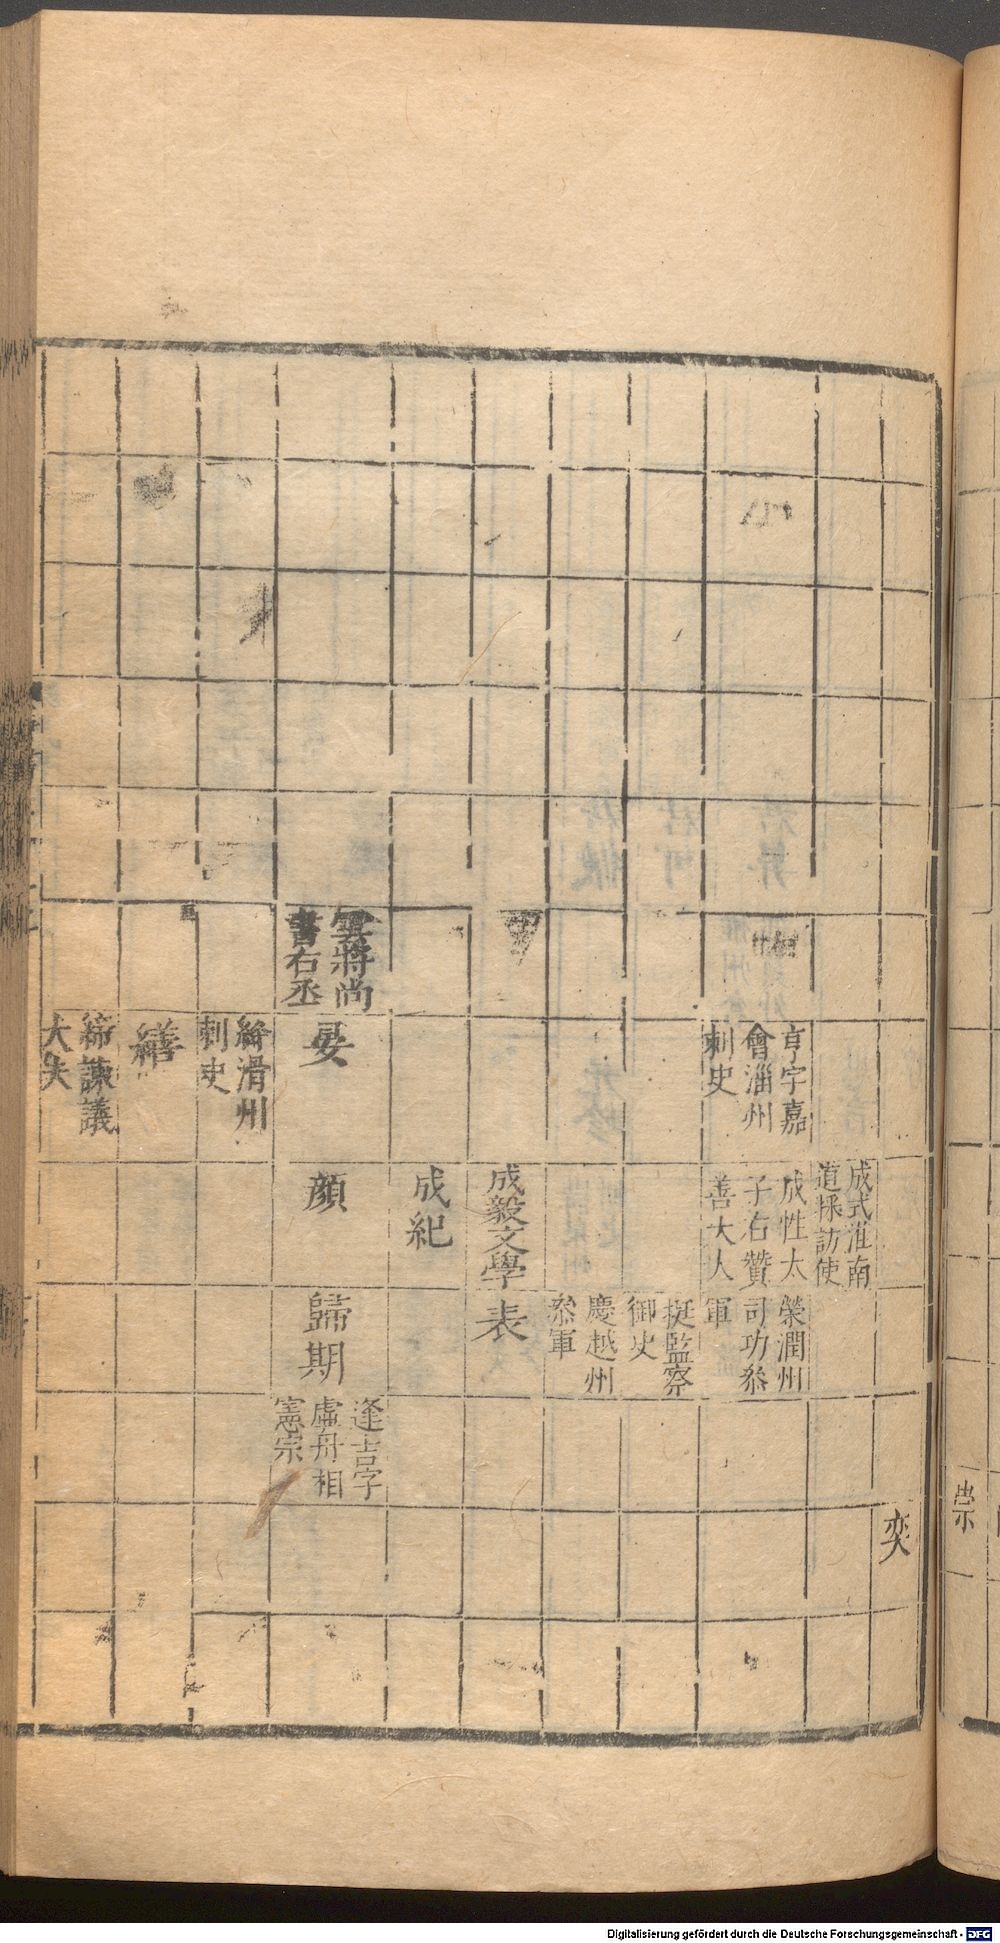 奕
成式淮南
道採訪使
亨字嘉
會淄州
刺史
成性太
子右贊
善大人
榮潤州
司功叅
軍
挺監察
御史
慶越州
叅軍
成毅文學
表
成紀
雲將尚
書右丞
晏
顔
歸期
逢吉字
虛舟相
憲宗
絳滑州
刺史
繕
締諫議
大夫
崇
Digitalisierung gefördert durch die Deutsche Forschungsgemeinschaft - DFG